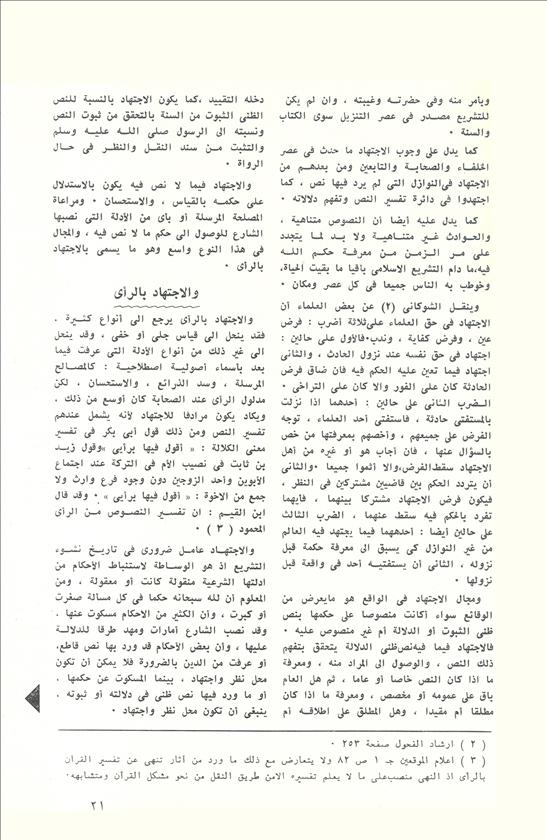 وبأمر منه وفى حضرته وغيبته ، وان لم يكن
للتشريع مصدر فى عصر التنزيل سوى الكتاب
والسنة ٠
كما يدل على وجوب الاجتهاد ما حدث فى عصر
الخلفاء والصحابة والتابعين ومن بعدهم من
الاجتهاد فىالنوازل التى لم يرد فيها نص ، كما
اجتهدوا فى دائرة تفسير النص وتفهم دلالاته ٠
كما يدل عليه أيضا أن النصوص متناهية ،
والحوادث غير متناهية ولا بد لما يتجدد
على مر الزمن من معرفة حكم الله
فيه،ما دام التشريع الاسلامى باقيا ما بقيت الحياة،
وخوطب به الناس جميعا فى كل عصر ومكان ٠
وينقل الشوكانى (٢) عن بعض العلماء أن
الاجتهاد فى حق العلماء علىثلاثة أضرب : فرض
عين ، وفرض كفاية ، وندب٠فالأول على حالين :
اجتهاد فى حق نفسه عند نزول الحادث ، والثانى
اجتهاد فيما تعين عليه الحكم فيه فان ضاق فرض
الحادثة كان على الفور والا كان على التراخى ٠
الـضرب الثانى على حالين : أحدهما اذا نزلت
بالمستفتى حادثة ، فاستفتى أحد العلماء ، توجه
الفرض على جميعهم ، وأخصهم بمعرفتها من خص
بالسؤال عنها ، فان أجاب هو أو غيره من أهل
الاجتهاد سقط الفرض،والا أثموا جميعا ٠والثانى
أن يتردد الحكم بين قاضيين مشتركين فى النظر ،
فيكون فرض الاجتهاد مشتركا بينهما ، فأيهما
تفرد بالحكم فيه سقط عنهما ، الضرب الثالث
على حالين أيضا : أحدههما فيما يجتهد فيه العالم
من غير النوازل كى يسبق الى معرفة حكمة قبل
نزوله ، الثانى أن يستفتيه أحد فى واقعة قبل
نزولها ٠
ومجال الاجتهاد فى الواقع هو مايعرض من
الوقائع سواء أكانت منصوصا على حكمها بنص
ظنى الثبوت أو الدلالة أم غير منصوص عليه ٠
فالاجتهاد فيما فيهنصظنى الدلالة يتحقق بتفهم
ذلك النص ، والوصول الى المراد منه ، ومعرفة
ما اذا كان النص خاصا أو عاما ، ثم هل العام
باق على عمومه أو مخصص ، ومعرفة ما اذا كان
مطلقا أم مقيدا ، وهل المطلق على اطلاقه أم
دخله التقييد ،كما يكون الاجتهاد بالنسبة للنص
الظنى الثبوت من السنة بالتحقق من ثبوت النص
ونسبته الى الرسول صلى الله عليه وسلم
والتثبت من سند النقل والنظر فى حال
الرواة ٠
والاجتهاد فيما لا نص فيه يكون بالاستدلال
على حكمه بالقياس ، والاستحسان ٠ ومراعاة
المصلحة المرسلة أو بأى من الأدلة التى نصبها
الشارع للوصول الى حكم ما لا نص فيه ، والمجال
فى هذا النوع واسع وهو ما يسمى بالاجتهاد
بالرأى ٠
والاجتهاد بالرأى
والاجتهاد بالرأى يرجع الى أنواع كثيرة ،
فقد ينحل الى قياس جلى أو خفى ، وقد ينحل
الى غير ذلك من أنواع الأدلة التى عرفت فيما
بعد بأسماء أصولية اصطلاحية : كالمصالح
المرسلة ، وسد الذرائع ، والاستحسان ، لكن
مدلول الرأى عند الصحابة كان أوسع من ذلك ،
ويكاد يكون مرادفا للاجتهاد لأنه يشمل عندهم
تفسير النص ومن ذلك قول أبى بكر فى تفسير
معنى الكلالة : « أقول فيها برأيى »وقول زيد
بن ثابت فى نصيب الأم فى التركة عند اجتماع
الأبوين وأحد الزوجين دون وجود فرع وارث ولا
جمع من الاخوة : « أقول فيها برأيى » ٠ وقد قال
ابن القيم : ان تفسير النصوص من الرأى
المحمود ( ٣ ) ٠
والاجتهاد عامل ضرورى فى تاريخ نشوء
التشريع اذ هو الوساطة لاستنباط الأحكام من
ادلتها الشرعية منقولة كانت أو معقولة ، ومن
المعلوم أن لله سبحانه حكما فى كل مسألة صغرت
أو كبرت ، وأن الكثير من الأحكام مسكوت عنها ،
وقد نصب الشارع أمارات ومهد طرقا للدلالة
عليها ، وأن بعض الأحكام قد ورد بها نص قاطع،
أو عرفت من الدين بالضرورة فلا يمكن أن تكون
محل نظر واجتهاد ، بينما المسكوت عن حكمها ،
أو ما ورد فيها نص ظنى فى دلالته أو ثبوته ،
ينبغى أن تكون محل نظر واجتهاد ٠
( ٢ ) ارشاد الفحول صفحة ٢٥٣ ٠
( ٣ ) أعلام الموقعين جـ ١ ص ٨٢ ولا يتعارض مع ذلك ما ورد من آثار تنهى عن تفسير القرآن
بالرأى اذ النهى منصبعلى ما لا يعلم تفسيره الامن طريق النقل من نحو مشكل القرآن ومتشابهه٠
٢١